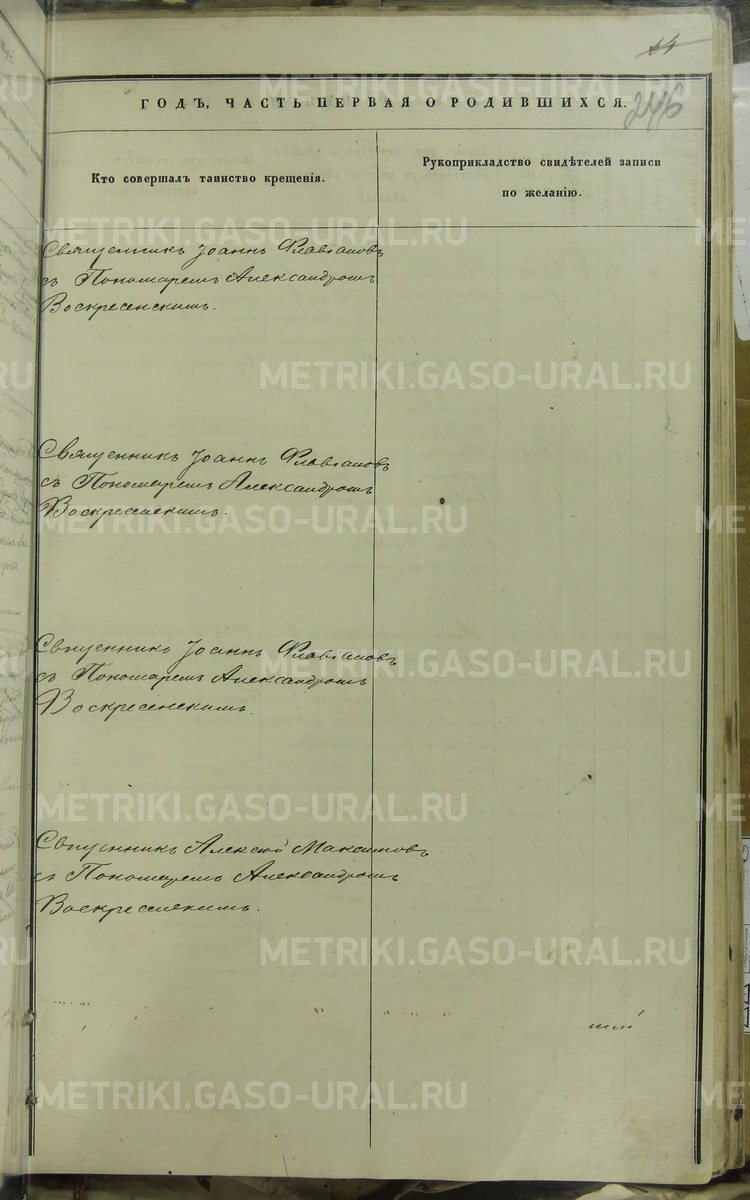 246
ГОДЪ, ЧАСТЬ ПЕРВАЯ О РОДИВШИХСЯ.
Кто совершалъ таинство крещенія.
Рукоприкладство свидѣтелей записи
по желанію.
Священникъ Іоаннъ Флавіановъ
съ Пономаремъ Александромъ
Воскресенскимъ.
Священникъ Іоаннъ Флавіановъ
съ Пономаремъ Александромъ
Воскресенскимъ.
Священникъ Іоаннъ Флавіановъ
съ Пономаремъ Александромъ
Воскресенскимъ.
Священникъ Алексій Максимовъ
съ Пономаремъ Александромъ
Воскресенскимъ.
METRIKI.GASO-URAL.RU
METRIKI.GASO-URAL.RU
METRIKI.GASO-URAL.RU
METRIKI.GASO-URAL.RU
METRIKI.GASO-URAL.RU
METRIKI.GASO-URAL.RU
METRIKI.GASO-URAL.RU
METRIKI.GASO-URAL.RU